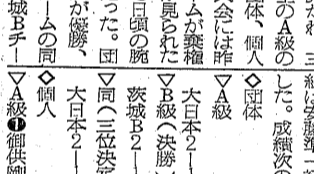 のA級の
体、個人
会には昨
ムが棄権
見られた
日頃の腕
った。団
が優勝、
ームの同
城Bチー
した。成績次の
◇団体
▽A級
大日本2―
▽B級(決勝)
茨城B2―
▽同(三位決
大日本2―
◇個人
▽A級❶御供剛